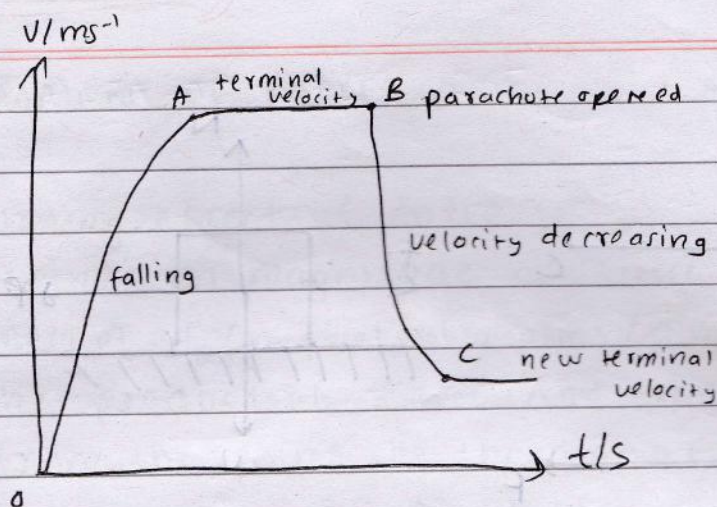 V/ms⁻¹
A terminal velocity B parachute opened
falling
velocity decreasing
C new terminal velocity
t/s
0